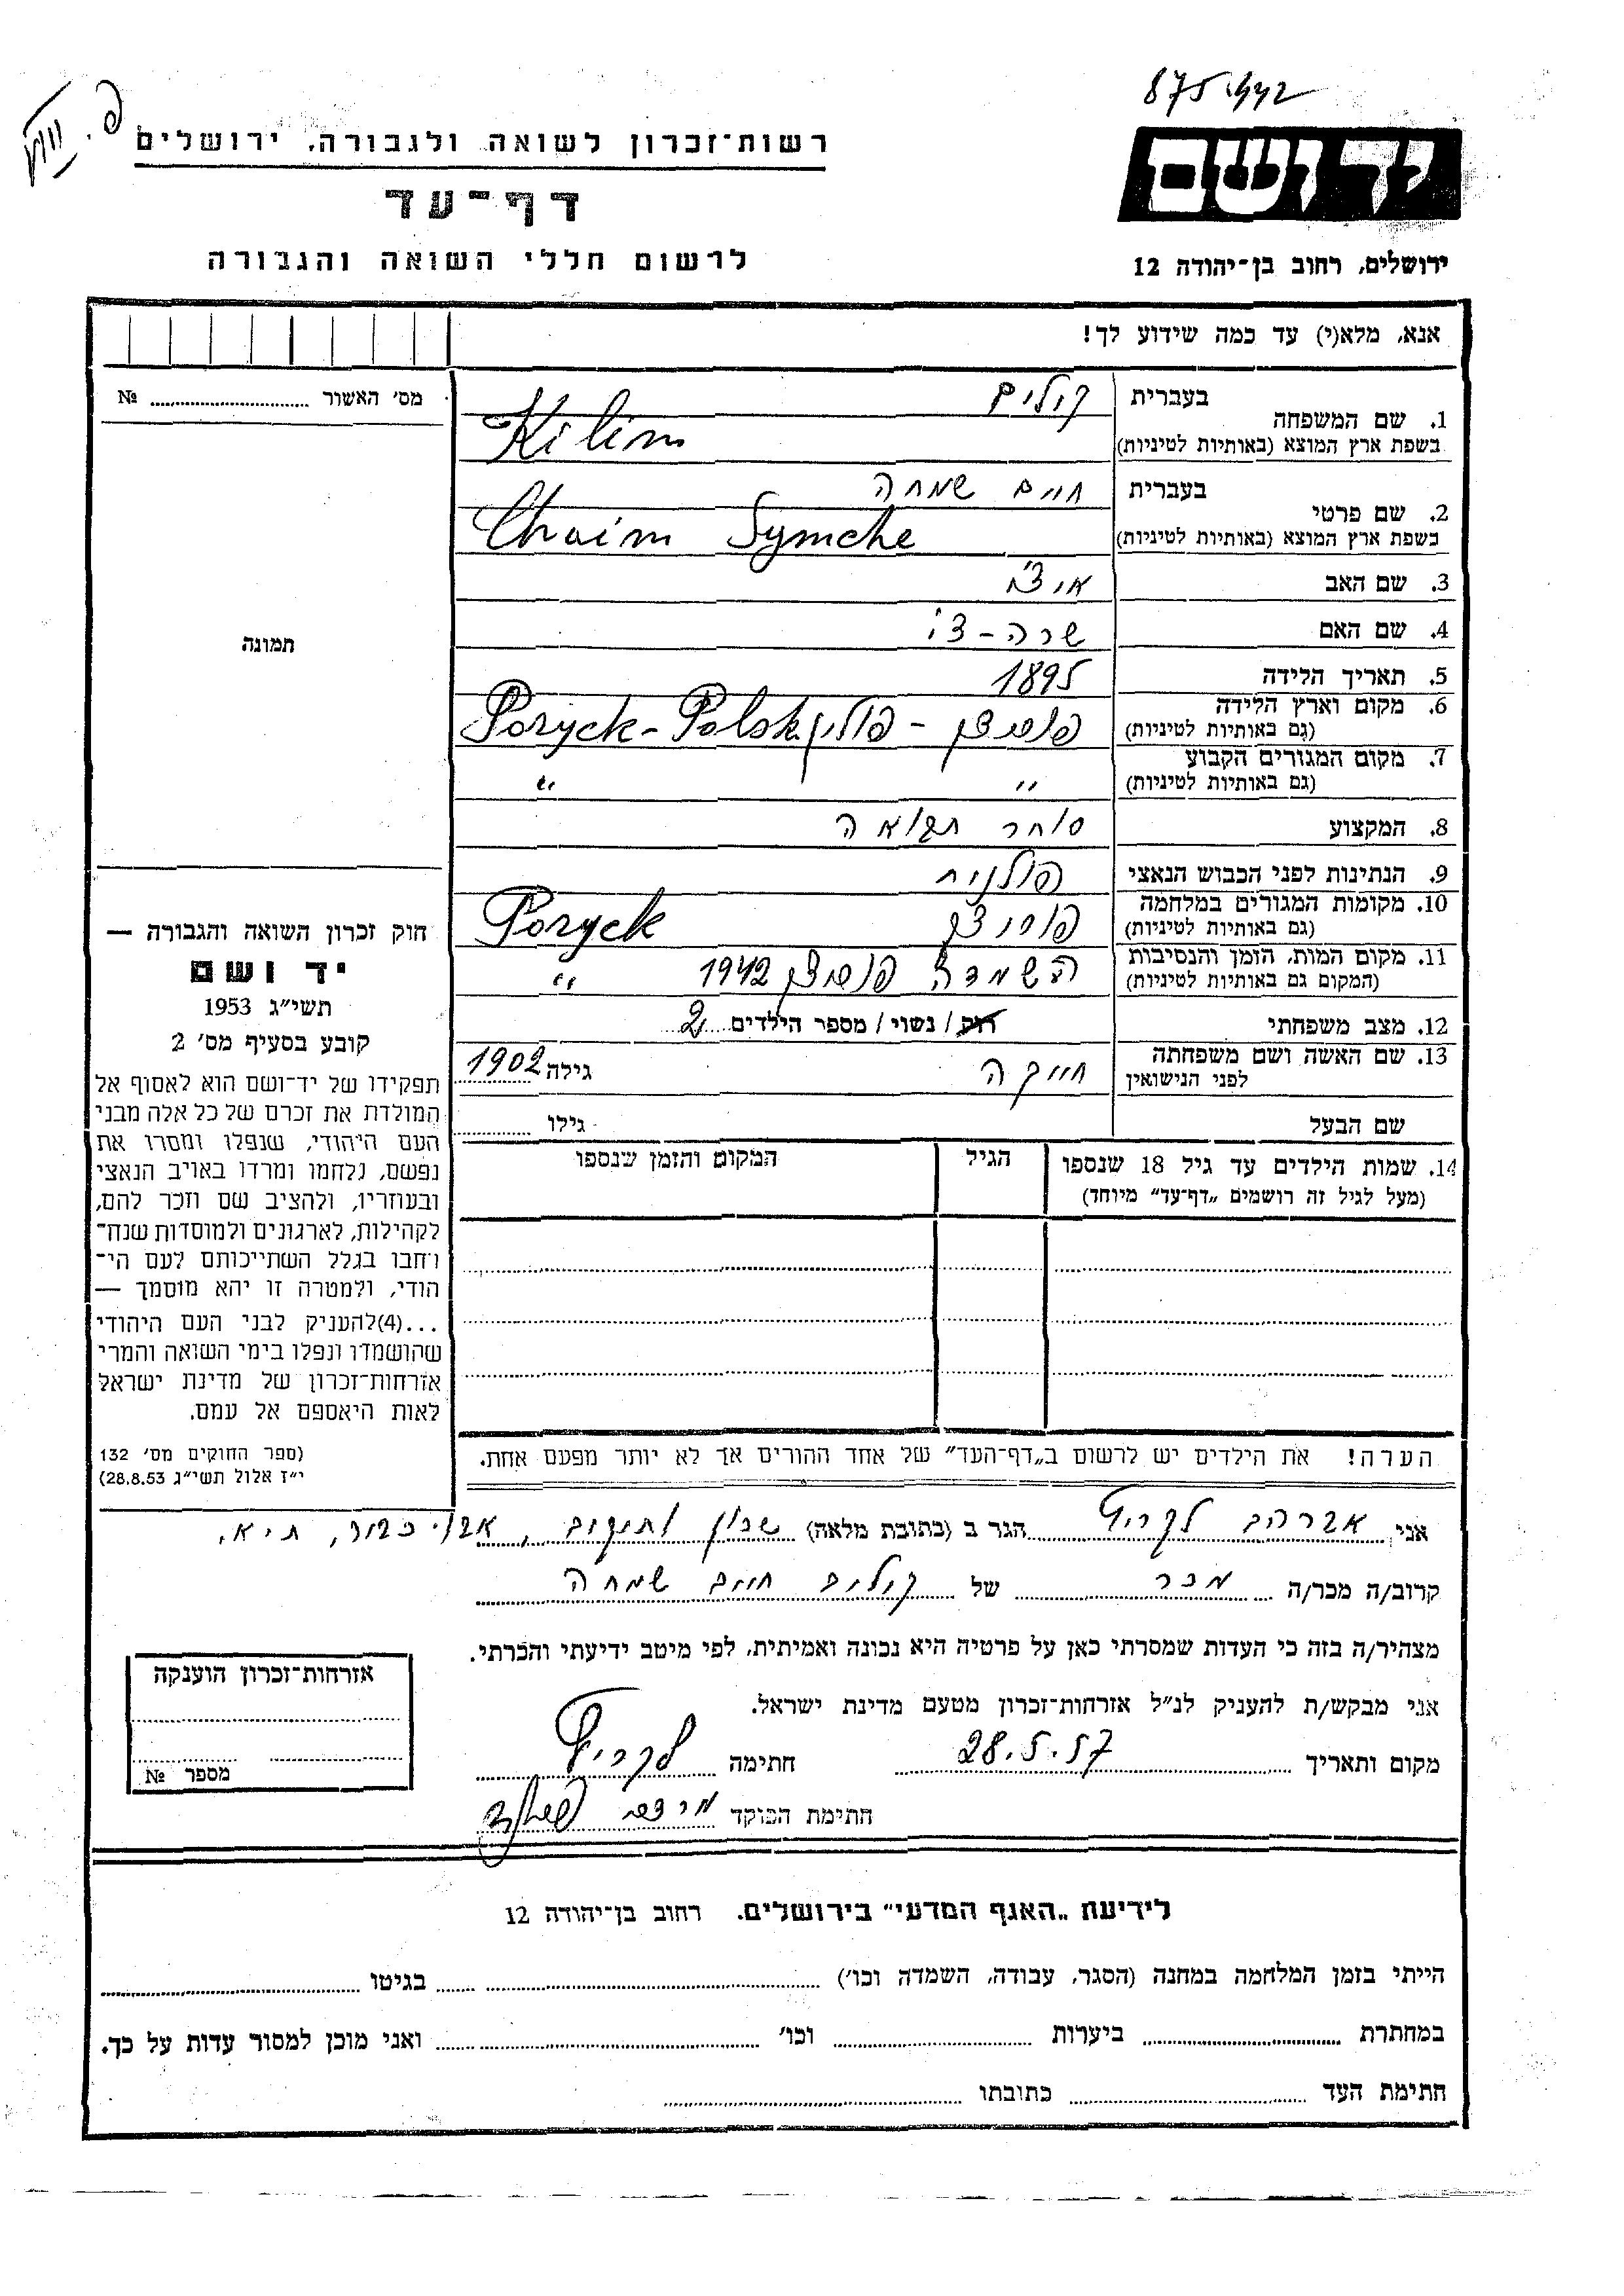 875.442
יד ושם
ירושלים, רחוב בן־יהודה 12
רשות־זכרון לשואה ולגבורה, ירושלים
דף־עד
לרשום חללי השואה והגבורה
אנא, מלא(י) עד כמה שידוע לך!
מס׳ האשור № 
תמונה
1. שם המשפחה
בעברית קילים
בשפת ארץ המוצא (באותיות לטיניות) Kilim
2. שם פרטי
בעברית חיים שמחה
בשפת ארץ המוצא (באותיות לטיניות) Chaim Symche
3. שם האב
4. שם האם שרה-
5. תאריך הלידה 1895
6. מקום וארץ הלידה פוריצק - פולין Poryck-Polska
(גם באותיות לטיניות)
7. מקום המגורים הקבוע " "
(גם באותיות לטיניות)
8. המקצוע סוחר תבואה
9. הנתינות לפני הכבוש הנאצי פולנית
10. מקומות המגורים במלחמה פוריצק Poryck
(גם באותיות לטיניות)
11. מקום המות, הזמן והנסיבות השמדה פוריצק 1942 "
(המקום גם באותיות לטיניות)
12. מצב משפחתי רוק / נשוי / מספר הילדים 2
13. שם האשה ושם משפחתה חייקה גילה 1902
לפני הנישואין
שם הבעל גילו
14. שמות הילדים עד גיל 18 שנספו הגיל המקום והזמן שנספו
(מעל לגיל זה רושמים „דף־עד” מיוחד)
הערה! את הילדים יש לרשום ב„דף־העד” של אחד ההורים אך לא יותר מפעם אחת.
חוק זכרון השואה והגבורה —
יד ושם
תשי״ג 1953
קובע בסעיף מס׳ 2
תפקידו של יד־ושם הוא לאסוף אל
המולדת את זכרם של כל אלה מבני
העם היהודי, שנפלו ומסרו את
נפשם, נלחמו ומרדו באויב הנאצי
ובעוזריו, ולהציב שם וזכר להם,
לקהילות, לארגונים ולמוסדות שנח־
רחבו בגלל השתייכותם לעם הי־
הודי, ולמטרה זו יהא מוסמך —
...(4)להעניק לבני העם היהודי
שהושמדו ונפלו בימי השואה והמרי
אזרחות־זכרון של מדינת ישראל
לאות היאספם אל עמם.
(ספר החוקים מס׳ 132
י״ז אלול תשי״ג 28.8.53)
אני, אברהם הגר ב (כתובת מלאה) שכון ותיקים, אבו כביר, ת״א.
קרוב/ה מכר/ה מכר של קילים חיים שמחה
מצהיר/ה בזה כי העדות שמסרתי כאן על פרטיה היא נכונה ואמיתית, לפי מיטב ידיעתי והכרתי.
אני מבקש/ת להעניק לנ״ל אזרחות־זכרון מטעם מדינת ישראל.
מקום ותאריך 28.5.57 חתימה
חתימת הפוקד
אזרחות־זכרון הוענקה
מספר №
לידיעת „האגף המדעי” בירושלים, רחוב בן־יהודה 12
הייתי בזמן המלחמה במחנה (הסגר, עבודה, השמדה וכו׳) בגיטו
במחתרת ביערות וכו׳ ואני מוכן למסור עדות על כך.
חתימת העד כתובתו